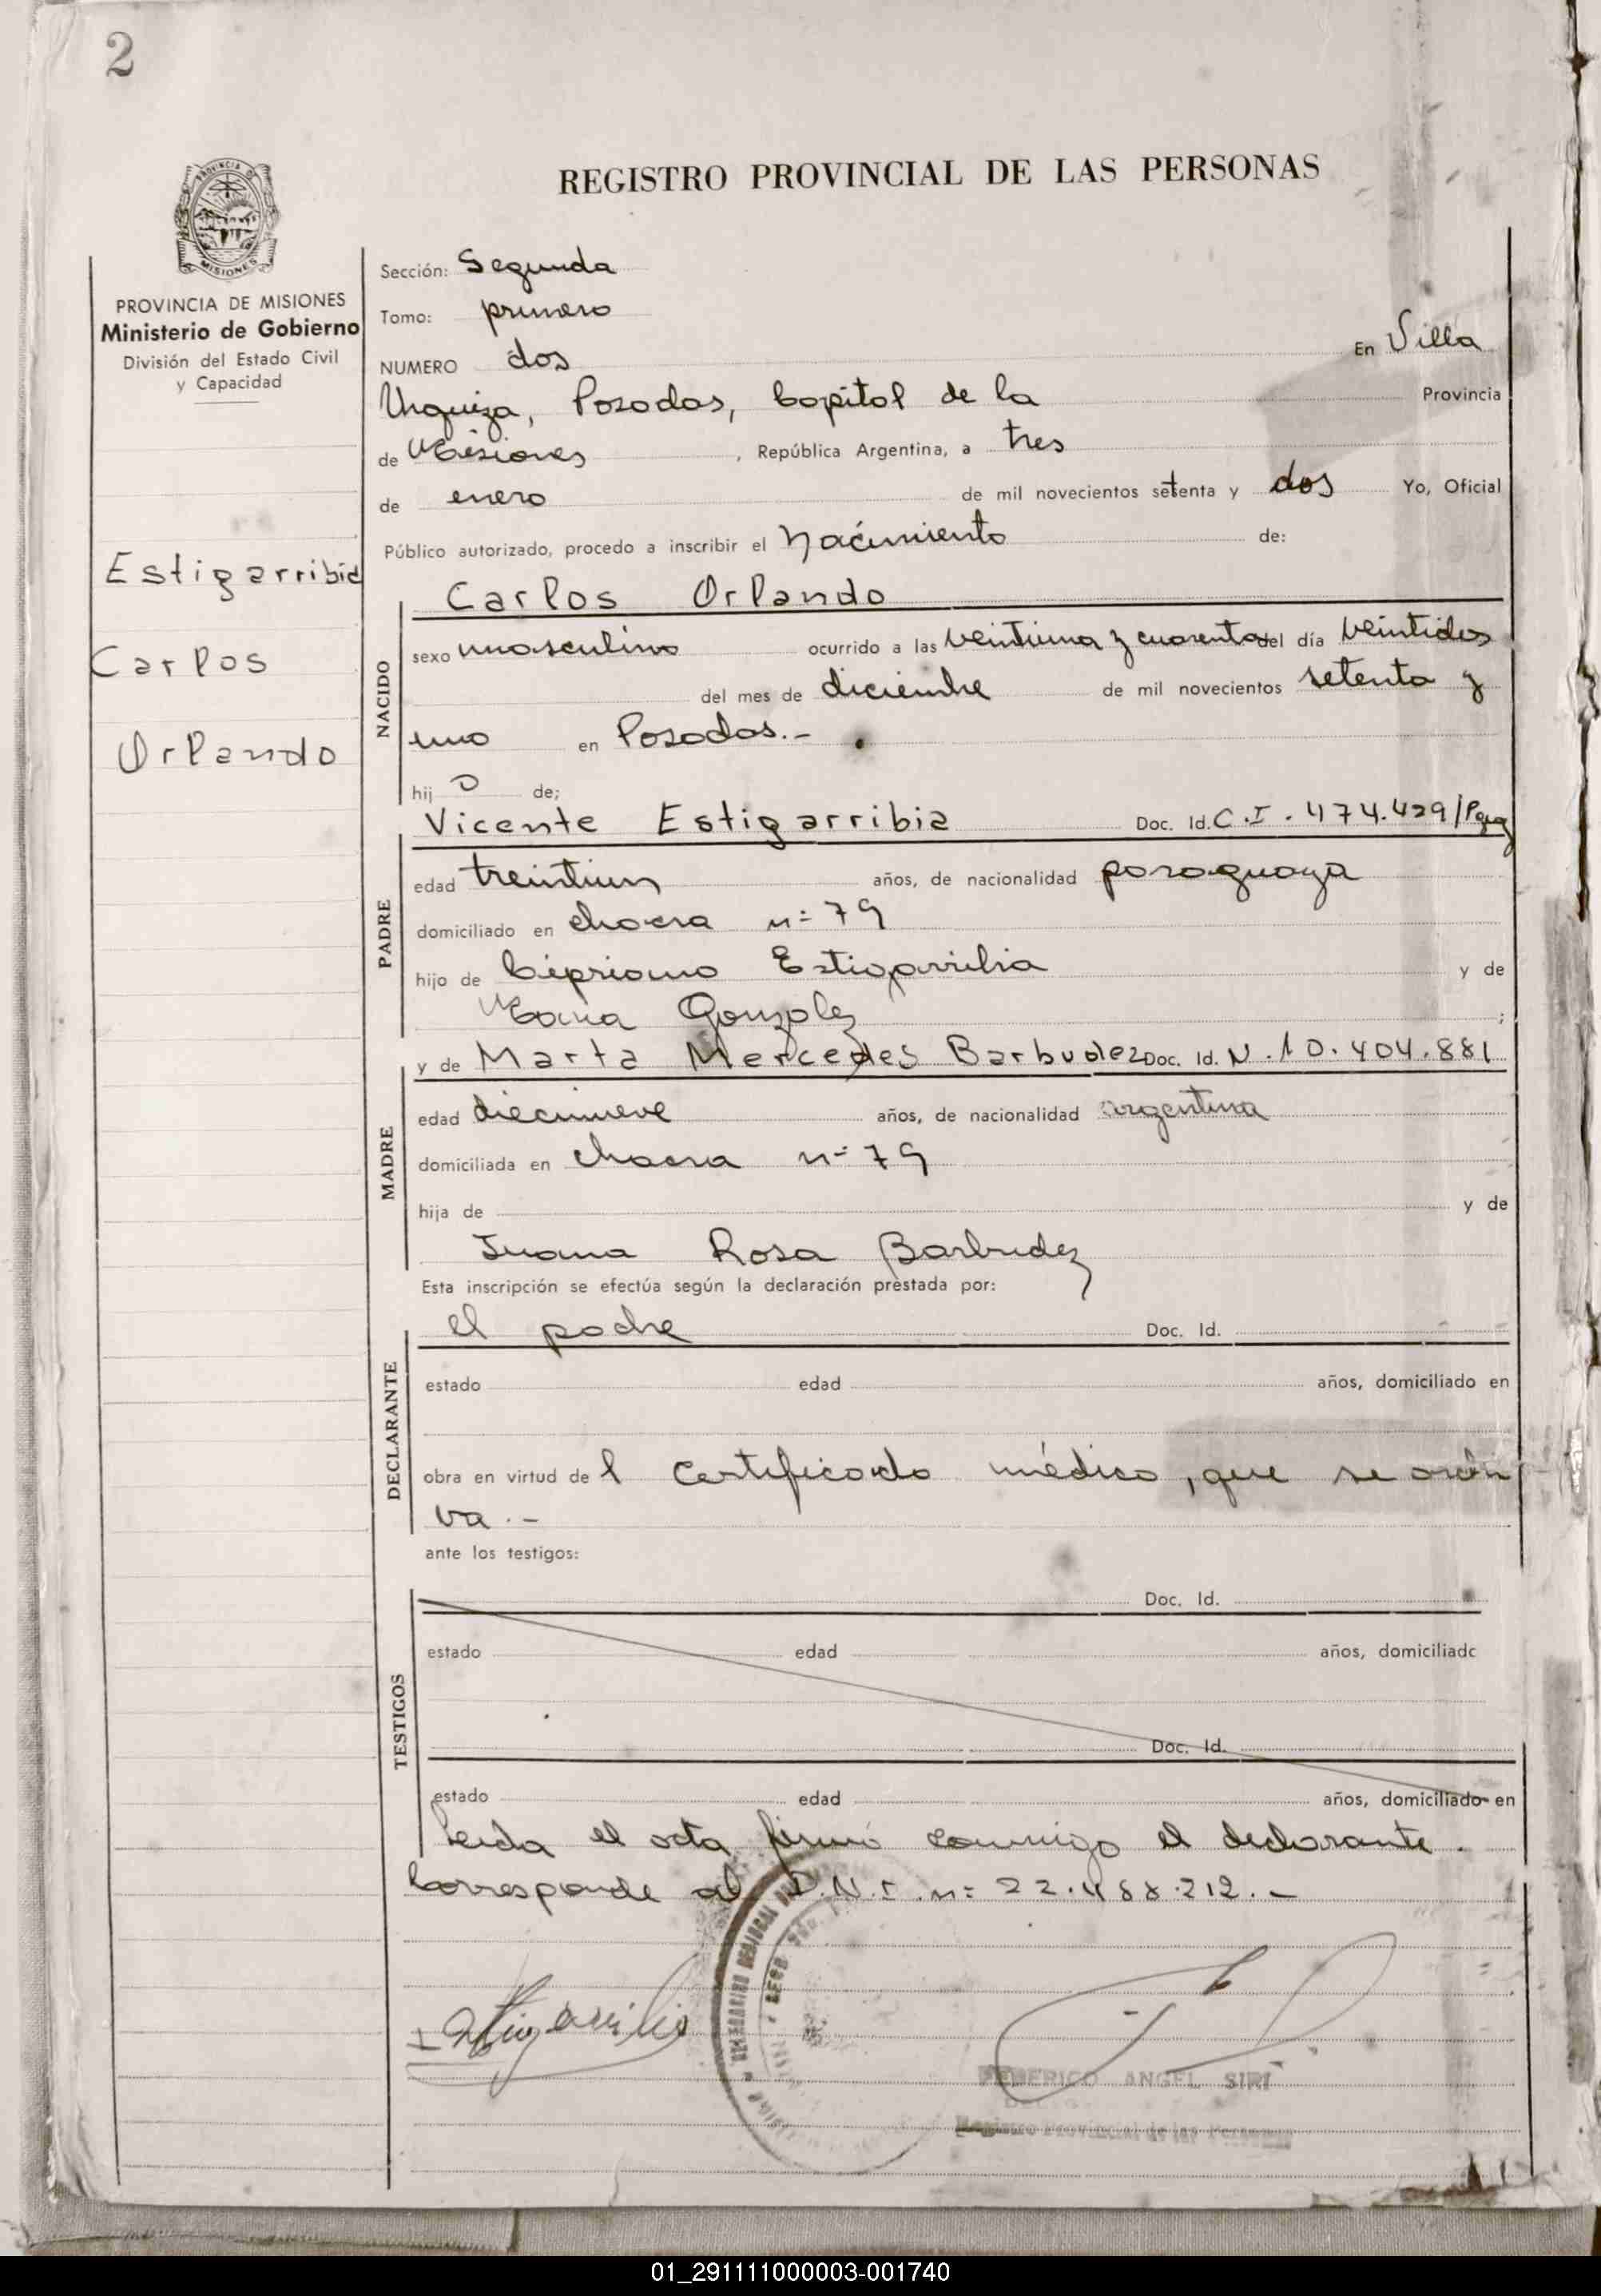 2
REGISTRO PROVINCIAL DE LAS PERSONAS
PROVINCIA DE MISIONES
Ministerio de Gobierno
División del Estado Civil
y Capacidad
Estigarribia
Carlos
Orlando
Sección: Segunda
Tomo: primero
NUMERO dos En Villa
Urquiza, Posadas, Capital de la Provincia
de Misiones, República Argentina, a tres
de enero de mil novecientos setenta y dos Yo, Oficial
Público autorizado, procedo a inscribir el Nacimiento de:
Carlos Orlando
NACIDO
sexo masculino ocurrido a las veintiuna y cuarenta del día veintidos
del mes de diciembre de mil novecientos setenta y
uno en Posadas.-
hijo de;
Vicente Estigarribia Doc. Id. C.I. 474.429/
PADRE
edad treintiun años, de nacionalidad paraguaya
domiciliado en chacra n= 79
hijo de Cipriano Estigarribia y de
Maria Gonzalez ;
y de Marta Mercedes Barbudez Doc. Id. N. 10.404.881
MADRE
edad diecinueve años, de nacionalidad argentina
domiciliada en chacra n= 79
hija de y de
Juana Rosa Barbudez
Esta inscripción se efectúa según la declaración prestada por:
el padre Doc. Id.
DECLARANTE
estado edad años, domiciliado en
obra en virtud del certificado médico, que se archi
va.-
ante los testigos:
Doc. Id.
TESTIGOS
estado edad años, domiciliado
Doc. Id.
estado edad años, domiciliado en
Leida el acta firmó conmigo el declarante.
Corresponde al D.N.I. n= 22.488.212.-
Estigarribia
FEDERICO ANGEL SIRI
Registro Provincial de las Personas
01_291111000003-001740